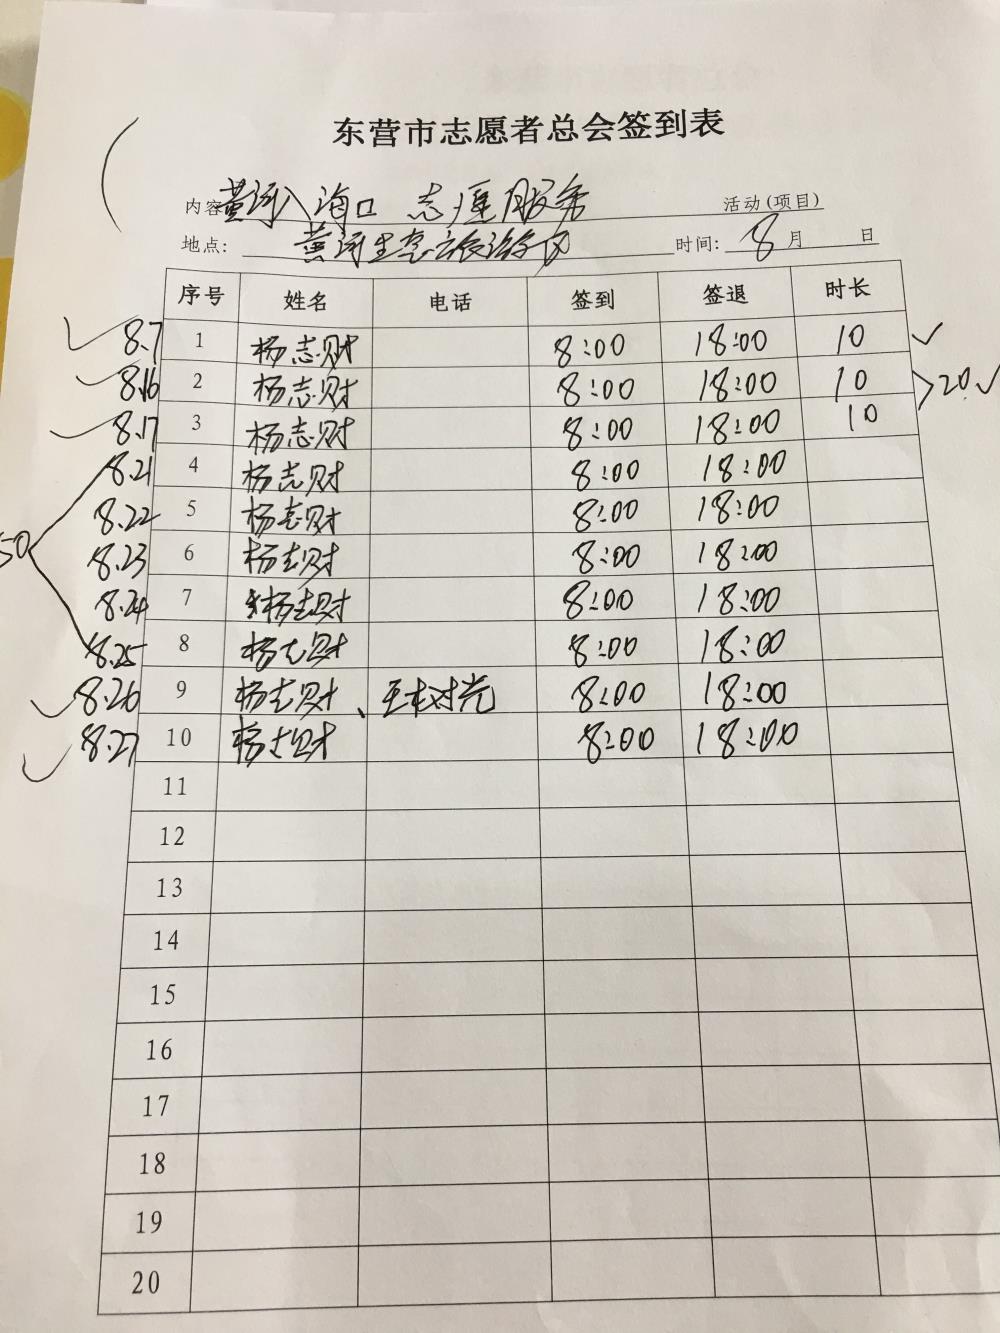 东营市志愿者总会签到表
内容 黄河入海口 志愿服务 活动(项目)
地点: 黄河生态旅游区 时间: 8 月 日
序号 姓名 电话 签到 签退 时长
8.7 1 杨志财 8:00 18:00 10
8.16 2 杨志财 8:00 18:00 10 20
8.17 3 杨志财 8:00 18:00 10
8.21 4 杨志财 8:00 18:00
8.22 5 杨志财 8:00 18:00
50 8.23 6 杨志财 8:00 18:00
8.24 7 杨志财 8:00 18:00
8.25 8 杨志财 8:00 18:00
8.26 9 杨志财、王树光 8:00 18:00
8.27 10 杨志财 8:00 18:00
11
12
13
14
15
16
17
18
19
20